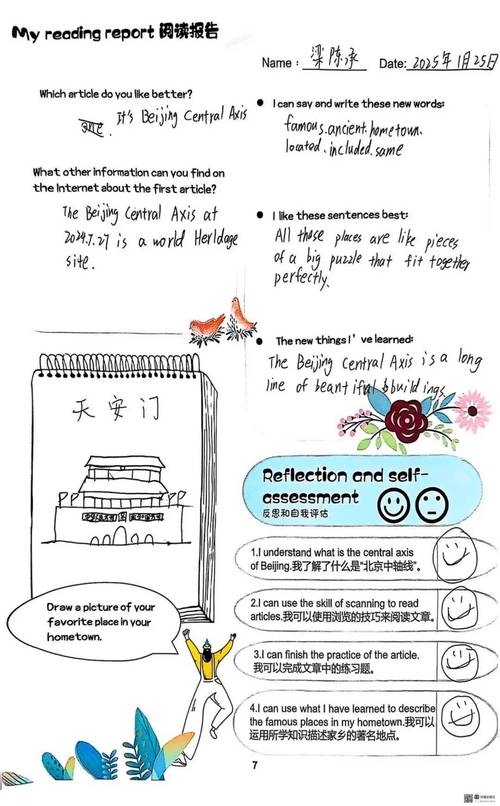 My reading report 阅读报告
Name: 梁陈承 Date: 2025年1月25日
Which article do you like better?
It's Beijing Central Axis
What other information can you find on
the Internet about the first article?
The Beijing Central Axis at
2024.7.27 is a world Herldage
site.
I can say and write these new words:
famous.ancient.hometown.
located.included.same
I like these sentences best:
All these places are like pieces
of a big puzzle that fit together
perfectly.
The new things I've learned:
The Beijing Central Axis is a long
line of beautiful buildings
天安门
Draw a picture of your
favorite place in your
hometown.
Reflection and self-
assessment
反思和自我评估
1.I understand what is the central axis
of Beijing.我了解了什么是“北京中轴线”。
2.I can use the skill of scanning to read
articles.我可以使用浏览的技巧来阅读文章。
3.I can finish the practice of the article.
我可以完成文章中的练习题。
4.I can use what I have learned to describe
the famous places in my hometown.我可以
运用所学知识描述家乡的著名地点。
7